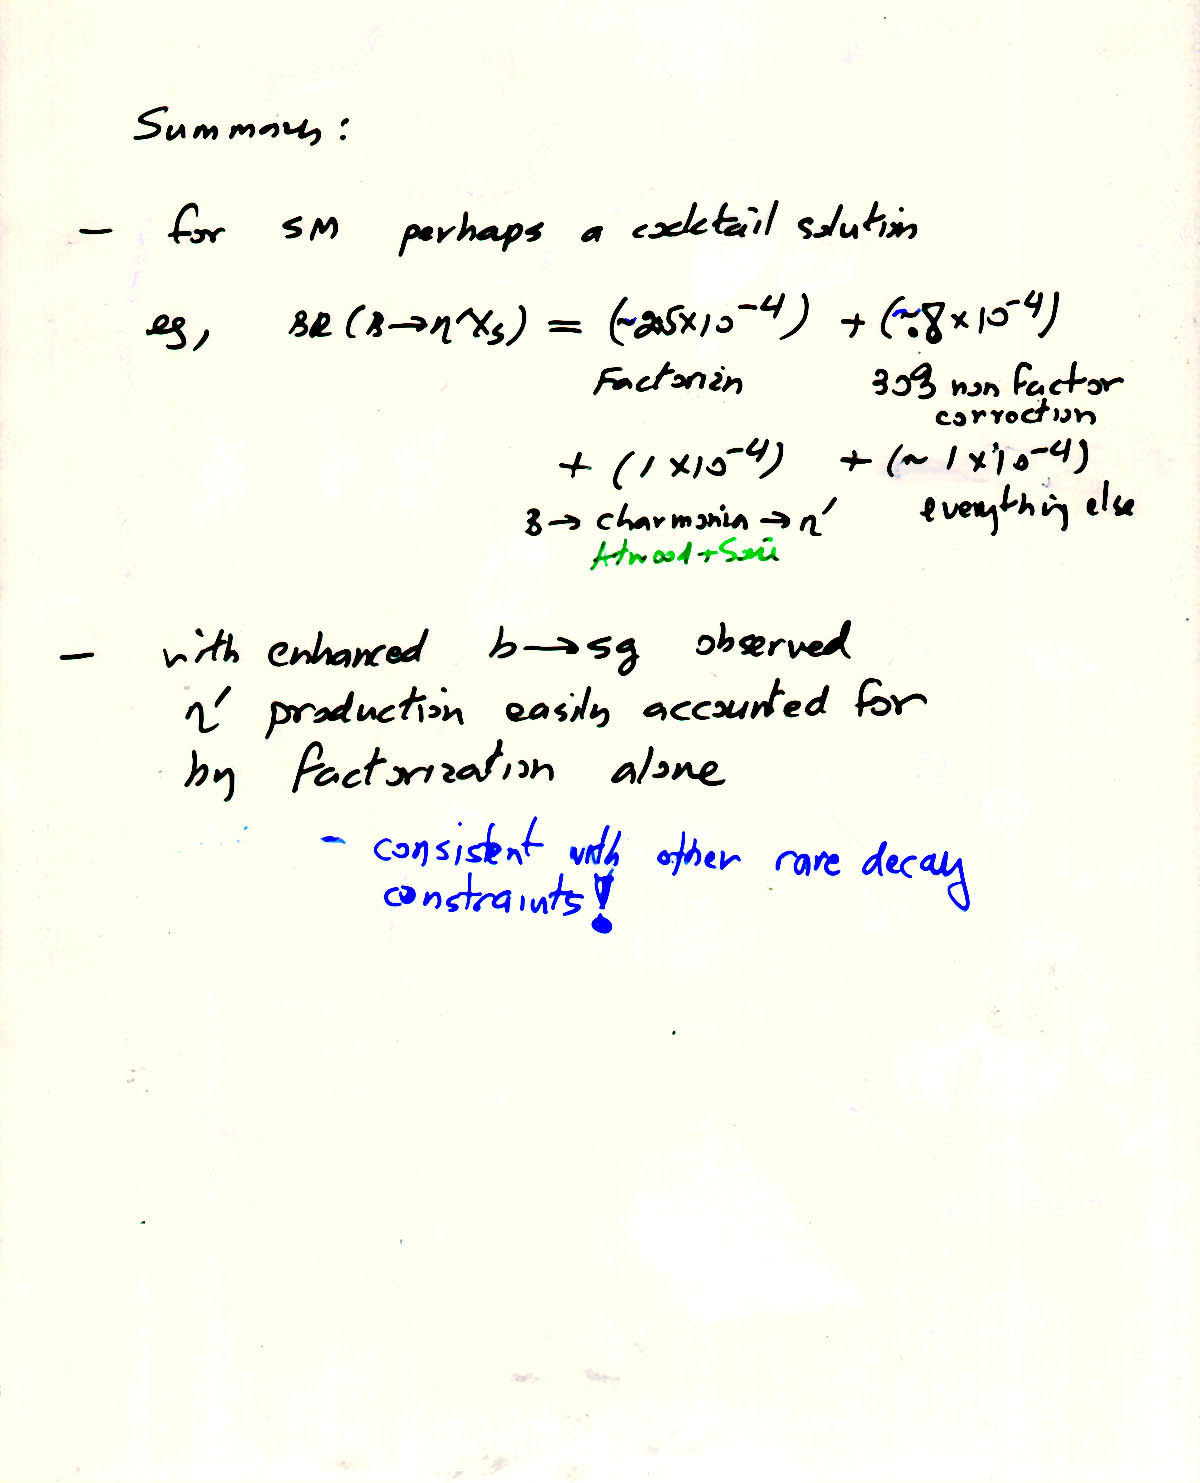 Summary:
- for SM perhaps a cocktail solution
eg, BR(B→η'Xs) = (~2.5×10⁻⁴) + (~.8×10⁻⁴)
Factoriz'n 30% non factor
correction
+ (1×10⁻⁴) + (~1×10⁻⁴)
B→ charmonia → η' everything else
Atwood + Soni
- with enhanced b→sg observed
η' production easily accounted for
by factorization alone
- consistent with other rare decay
constraints!